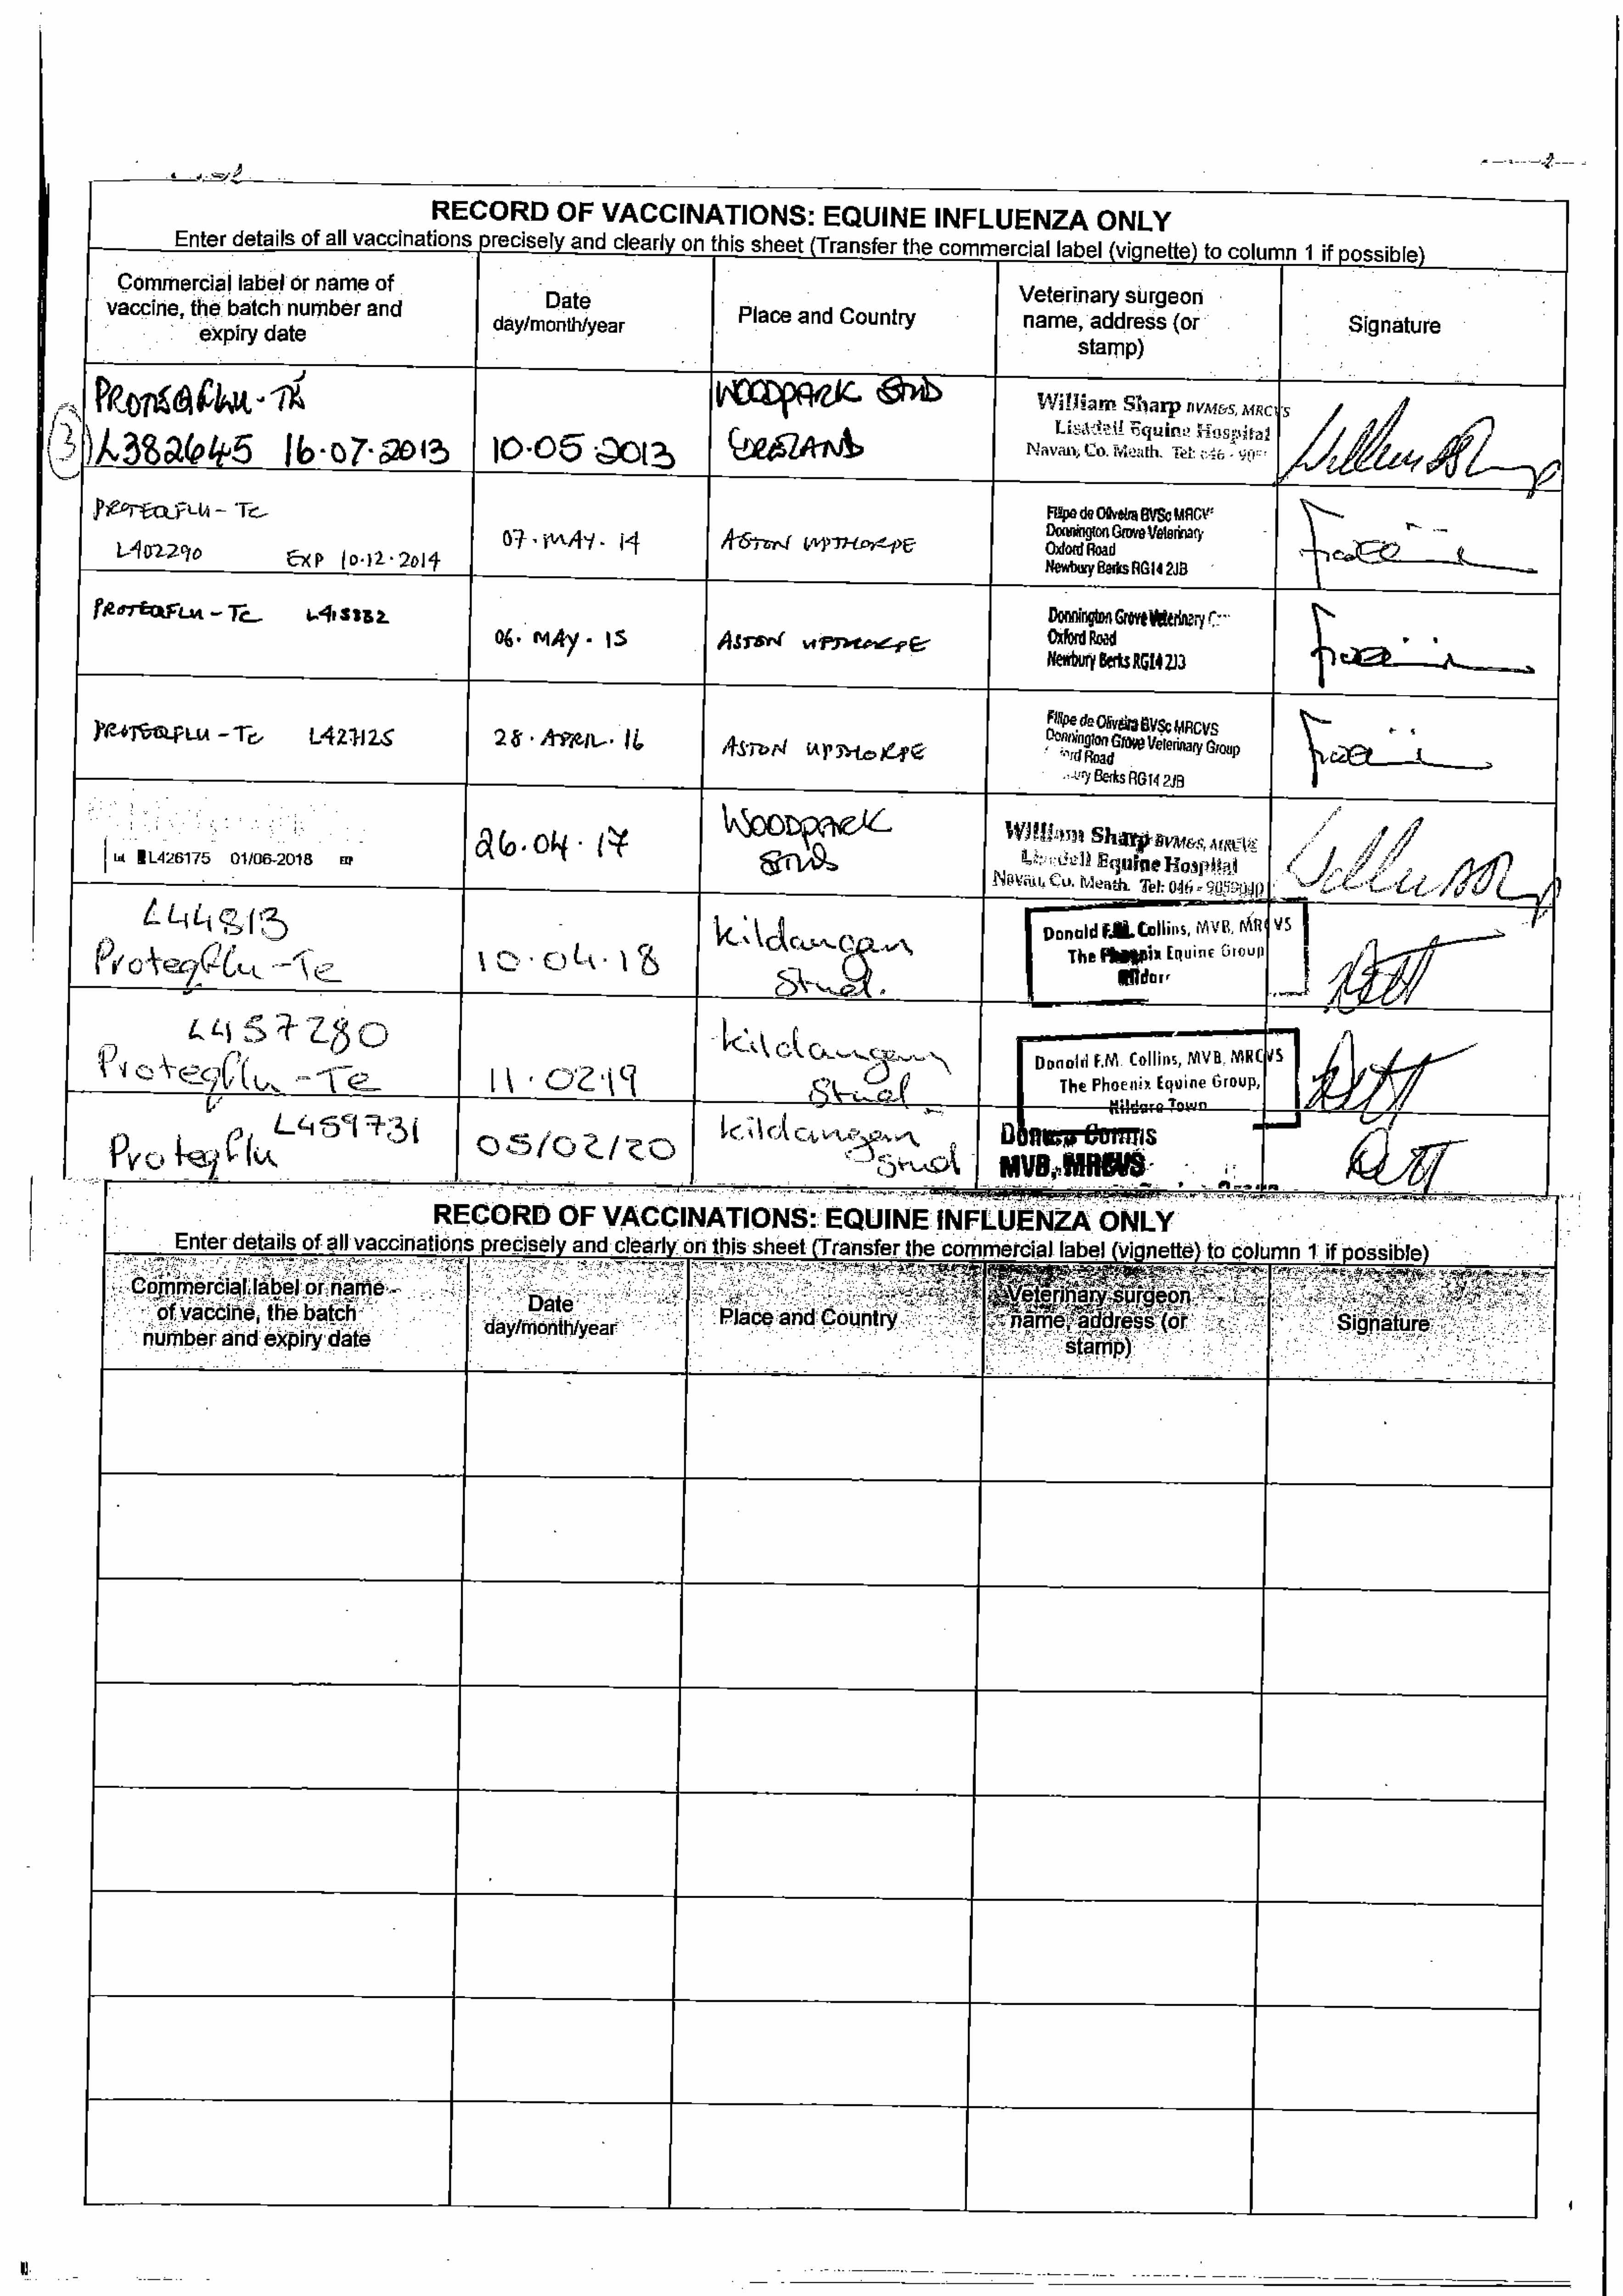 RECORD OF VACCINATIONS: EQUINE INFLUENZA ONLY
Enter details of all vaccinations precisely and clearly on this sheet (Transfer the commercial label (vignette) to column 1 if possible)
Commercial label or name of
vaccine, the batch number and
expiry date
Date
day/month/year
Place and Country
Veterinary surgeon
name, address (or
stamp)
Signature
3
L382645 16.07.2013
10.05.2013
WOODPARK
William Sharp BVM&S, MRCVS
Lisadell Equine Hospital
Navan, Co. Meath. Tel: 046 -
PROTEQFLU - TE
L402290 EXP 10.12.2014
07.MAY.14
ASTON UPTHORPE
Filipe de Oliveira BVSc MRCV
Donnington Grove Veterinary
Oxford Road
Newbury Berks RG14 2JB
PROTEQFLU - TE
06. MAY. 15
ASTON UPTHORPE
Donnington Grove Veterinary
Oxford Road
Newbury Berks RG14 2J3
PROTEQFLU - TE L427125
28. APRIL. 16
ASTON UPTHORPE
Filipe de Oliveira BVSc MRCVS
Donnington Grove Veterinary Group
Road
Berks RG14 2JB
Lot L426175 01/06-2018 EXP
26.04.17
WOODPARK
William Sharp BVM&S, MRCVS
Equine Hospital
Navan, Co. Meath. Tel: 046 - 9059040
L44813
Proteqflu - Te
10.04.18
Kildangan
Stud.
Donald F.M. Collins, MVB, MRCVS
The Phoenix Equine Group
L457280
Proteqflu - Te
11.02.19
Kildangan
Stud
Donald F.M. Collins, MVB, MRCVS
The Phoenix Equine Group,
Kildare Town
L459731
Proteqflu
05/02/20
Kildangan
Stud
MVB, MRCVS
RECORD OF VACCINATIONS: EQUINE INFLUENZA ONLY
Enter details of all vaccinations precisely and clearly on this sheet (Transfer the commercial label (vignette) to column 1 if possible)
Commercial label or name
of vaccine, the batch
number and expiry date
Date
day/month/year
Place and Country
Veterinary surgeon
name, address (or
stamp)
Signature